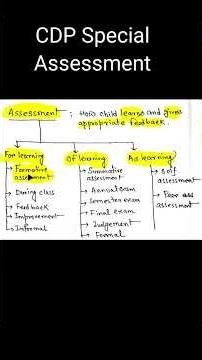 CDP Special
Assessment
Assessment : How child learns and gives
appropriate feedback.
For learning
Of learning
As learning
Formative
assessment
During class
Feedback
Improvement
Informal
Summative
assessment
Annual exam
Semester exam
Final exam
Judgement
Formal
Self
assessment
Peer ass
assessment